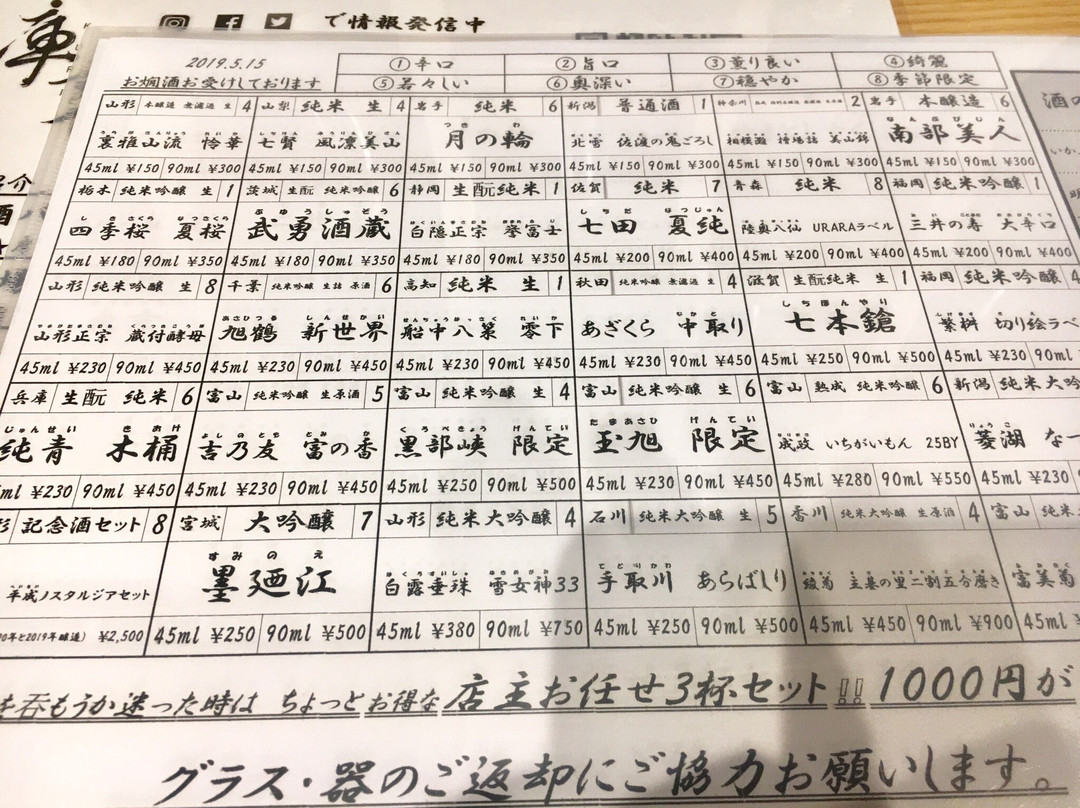 庫
で情報発信中
2019.5.15
お燗酒お受けしております
①辛口 ②旨口 ③薫り良い ④綺麗
⑤若々しい ⑥奥深い ⑦穏やか ⑧季節限定
山形 本醸造 無濾過 生 4 山梨 純米 生 4 岩手 純米 6 新潟 普通酒 1 神奈川 2 岩手 本醸造 6
裏雅山流 怜華 七賢 風凛美山 月の輪 北雪 佐渡の鬼ごろし 相模灘 美山錦 南部美人
45ml ¥150 90ml ¥300 45ml ¥150 90ml ¥300 45ml ¥150 90ml ¥300 45ml ¥150 90ml ¥300 45ml ¥150 90ml ¥300 45ml ¥150 90ml ¥300
栃木 純米吟醸 生 1 茨城 生酛 純米吟醸 6 静岡 生酛純米 1 佐賀 純米 7 青森 純米 8 福岡 純米吟醸 1
四季桜 夏桜 武勇酒蔵 白隠正宗 誉富士 七田 夏純 陸奥八仙 URARAラベル 三井の寿 大辛口
45ml ¥180 90ml ¥350 45ml ¥180 90ml ¥350 45ml ¥180 90ml ¥350 45ml ¥200 90ml ¥400 45ml ¥200 90ml ¥400 45ml ¥200 90ml ¥400
山形 純米吟醸 生 8 千葉 純米吟醸 生詰 原酒 6 高知 純米 生 1 秋田 純米吟醸 無濾過 生 4 滋賀 生酛純米 生 1 福岡 純米吟醸 4
山形正宗 蔵付酵母 旭鶴 新世界 船中八策 零下 あざくら 中取り 七本鎗 繁桝 切り絵ラベ
45ml ¥230 90ml ¥450 45ml ¥230 90ml ¥450 45ml ¥230 90ml ¥450 45ml ¥230 90ml ¥450 45ml ¥250 90ml ¥500 45ml ¥230 90ml
兵庫 生酛 純米 6 富山 純米吟醸 生原酒 5 富山 純米吟醸 生 4 富山 純米吟醸 生 6 富山 熟成 純米吟醸 6 新潟 純米大吟
純青 木桶 吉乃友 富の香 黒部峡 限定 玉旭 限定 成政 いちがいもん 25BY 菱湖 な
ml ¥230 90ml ¥450 45ml ¥230 90ml ¥450 45ml ¥250 90ml ¥500 45ml ¥230 90ml ¥450 45ml ¥280 90ml ¥550 45ml ¥230
記念酒セット 8 宮城 大吟醸 7 山形 純米大吟醸 4 石川 純米大吟醸 生 5 香川 純米大吟醸 生原酒 4 富山 純米
平成ノスタルジアセット 墨廼江 白露垂珠 雪女神33 手取川 あらばしり 綾菊 主基の里二割五分磨き 富美菊
年と2019年醸造) ¥2,500 45ml ¥250 90ml ¥500 45ml ¥380 90ml ¥750 45ml ¥250 90ml ¥500 45ml ¥450 90ml ¥900 45ml
を呑もうか迷った時は ちょっとお得な店主お任せ3杯セット!! 1000円が
グラス・器のご返却にご協力お願いします。